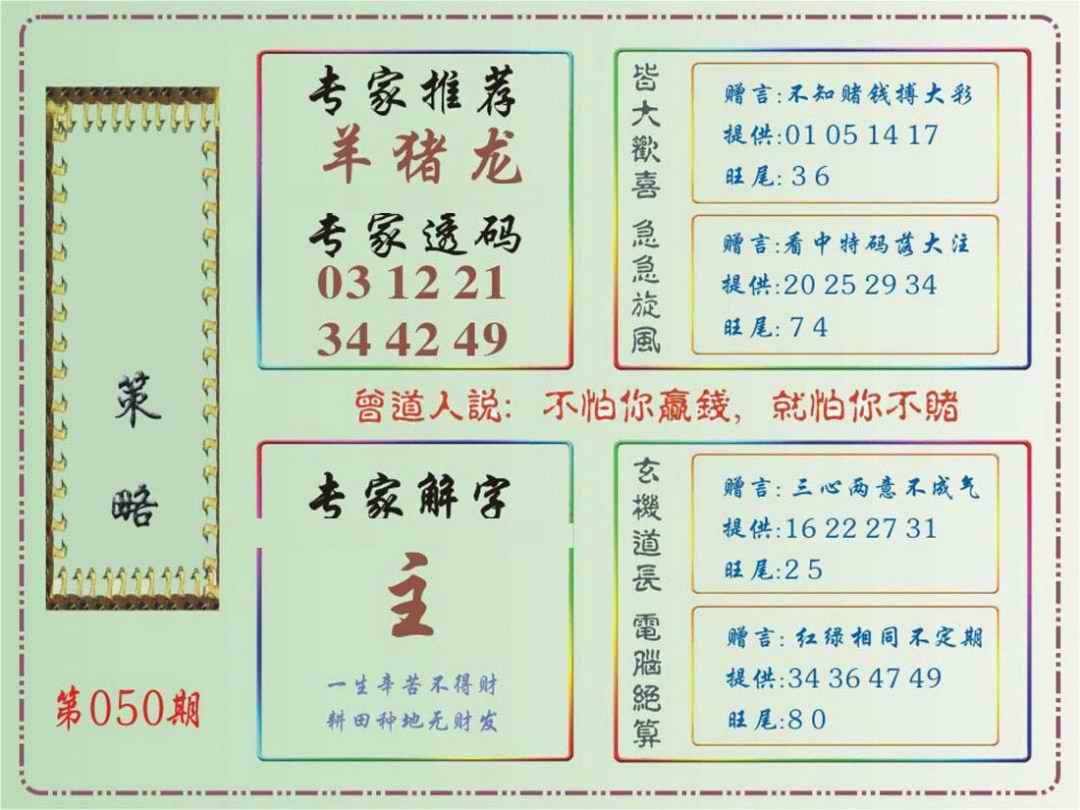 策
略
第050期
专家推荐
羊猪龙
专家透码
03 12 21
34 42 49
皆大歡喜
赠言:不知赌钱搏大彩
提供:01 05 14 17
旺尾: 3 6
急急旋風
赠言:看中特码落大注
提供:20 25 29 34
旺尾: 7 4
曾道人説: 不怕你贏錢, 就怕你不賭
专家解字
主
一生辛苦不得财
耕田种地无财发
玄機道長
赠言: 三心两意不成气
提供:16 22 27 31
旺尾:2 5
電腦絕算
赠言: 红绿相同不定期
提供:34 36 47 49
旺尾:8 0